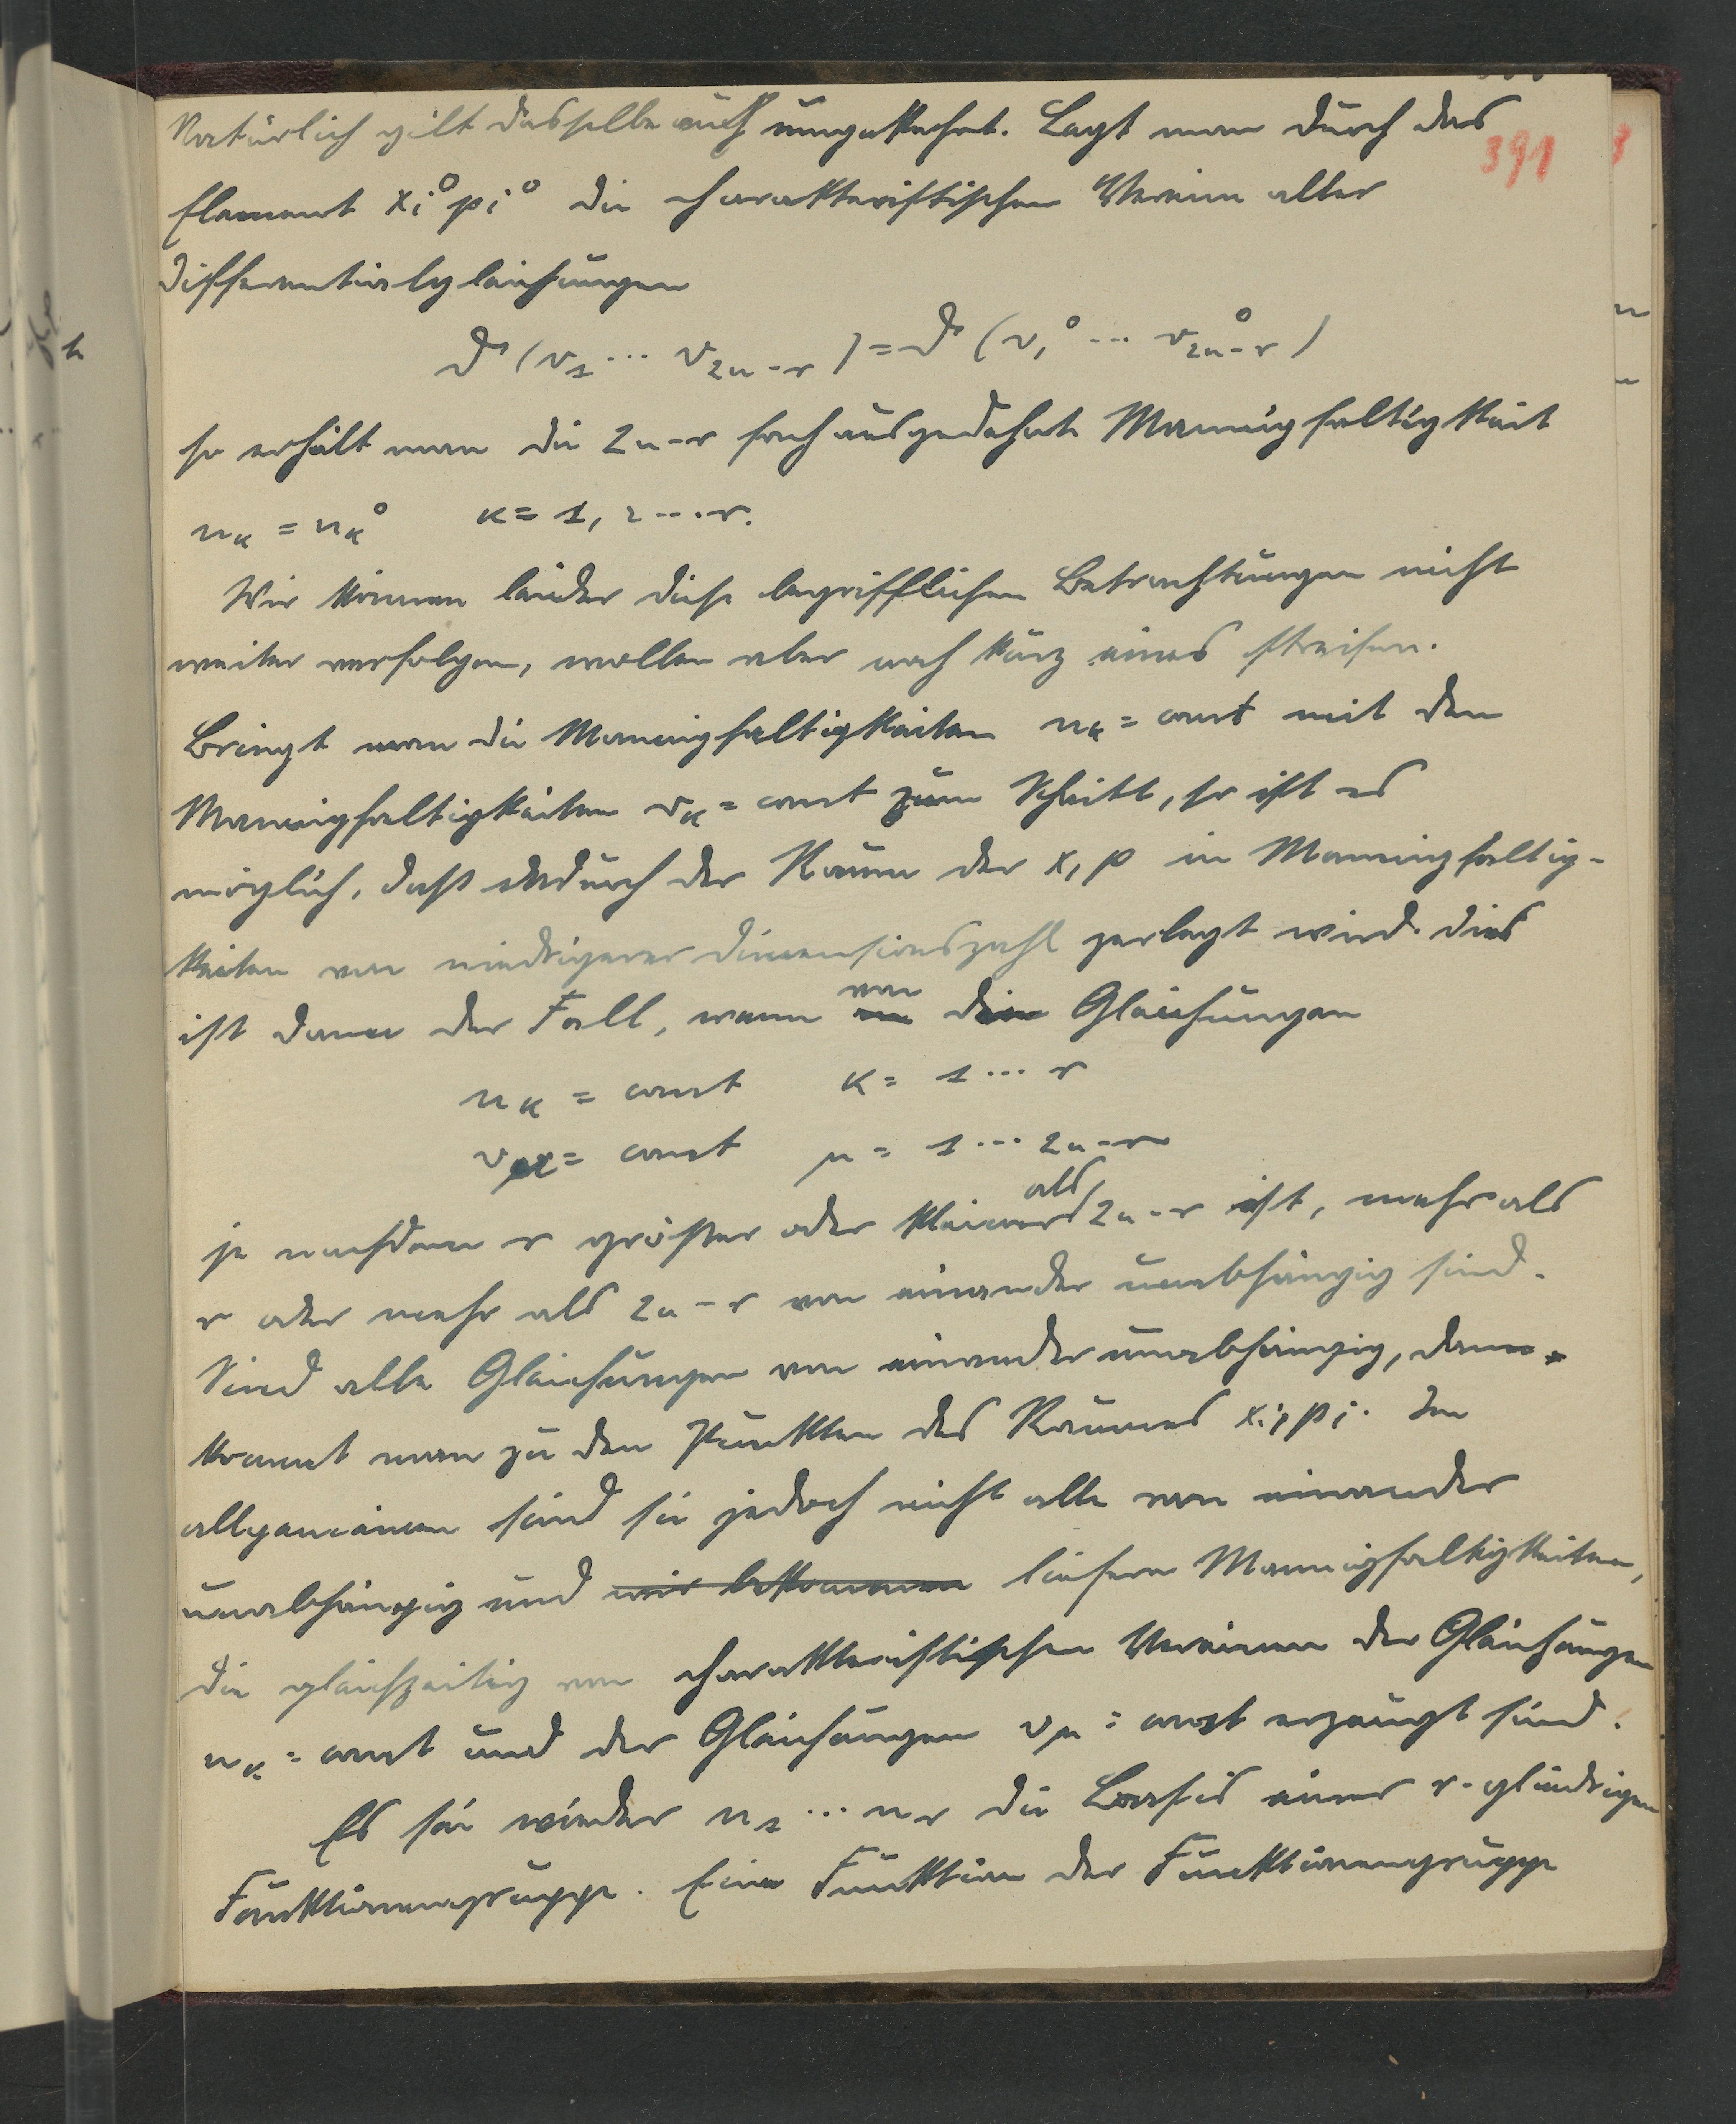 Natürlich gilt dasselbe auch umgekehrt. Legt man durch das
391
Element xᵢ⁰ pᵢ⁰ die charakteristischen Vereine aller
Differentialgleichungen
ϑ (v₁ ... v₂ₙ₋ᵣ) = ϑ (v₁⁰ ... v⁰₂ₙ₋ᵣ)
so erhält man die 2n-r fach ausgedehnte Mannigfaltigkeit
u_κ = u_κ⁰ κ = 1, 2 .... r.
Wir können leider diese begrifflichen Betrachtungen nicht
weiter verfolgen, wollen aber noch kurz eines streifen.
Bringt man die Mannigfaltigkeiten u_κ = const mit den
Mannigfaltigkeiten v_κ = const zum Schnitt, so ist es
möglich, daß dadurch der Raum der x, p in Mannigfaltig-
keiten von niedrigerer Dimensionszahl zerlegt wird. Dies
ist dann der Fall, wenn von den Gleichungen
u_κ = const κ = 1 ... r
v_μ = const μ = 1 ... 2n-r
je nachdem r größer oder kleiner als 2n-r ist, mehr als
r oder mehr als 2n-r von einander unabhängig sind.
Sind alle Gleichungen von einander unabhängig, dann
kommt man zu den Punkten des Raumes xᵢ, pᵢ. Im
allgemeinen sind sie jedoch nicht alle von einander
unabhängig und wir bekommen liefern Mannigfaltigkeiten,
die gleichzeitig von charakteristischen Vereinen der Gleichungen
u_κ = const und der Gleichungen v_μ = const erzeugt sind.
Es sei wieder u₁ ... uᵣ die Basis einer r-gliedrigen
Funktionengruppe. Eine Funktion der Funktionengruppe